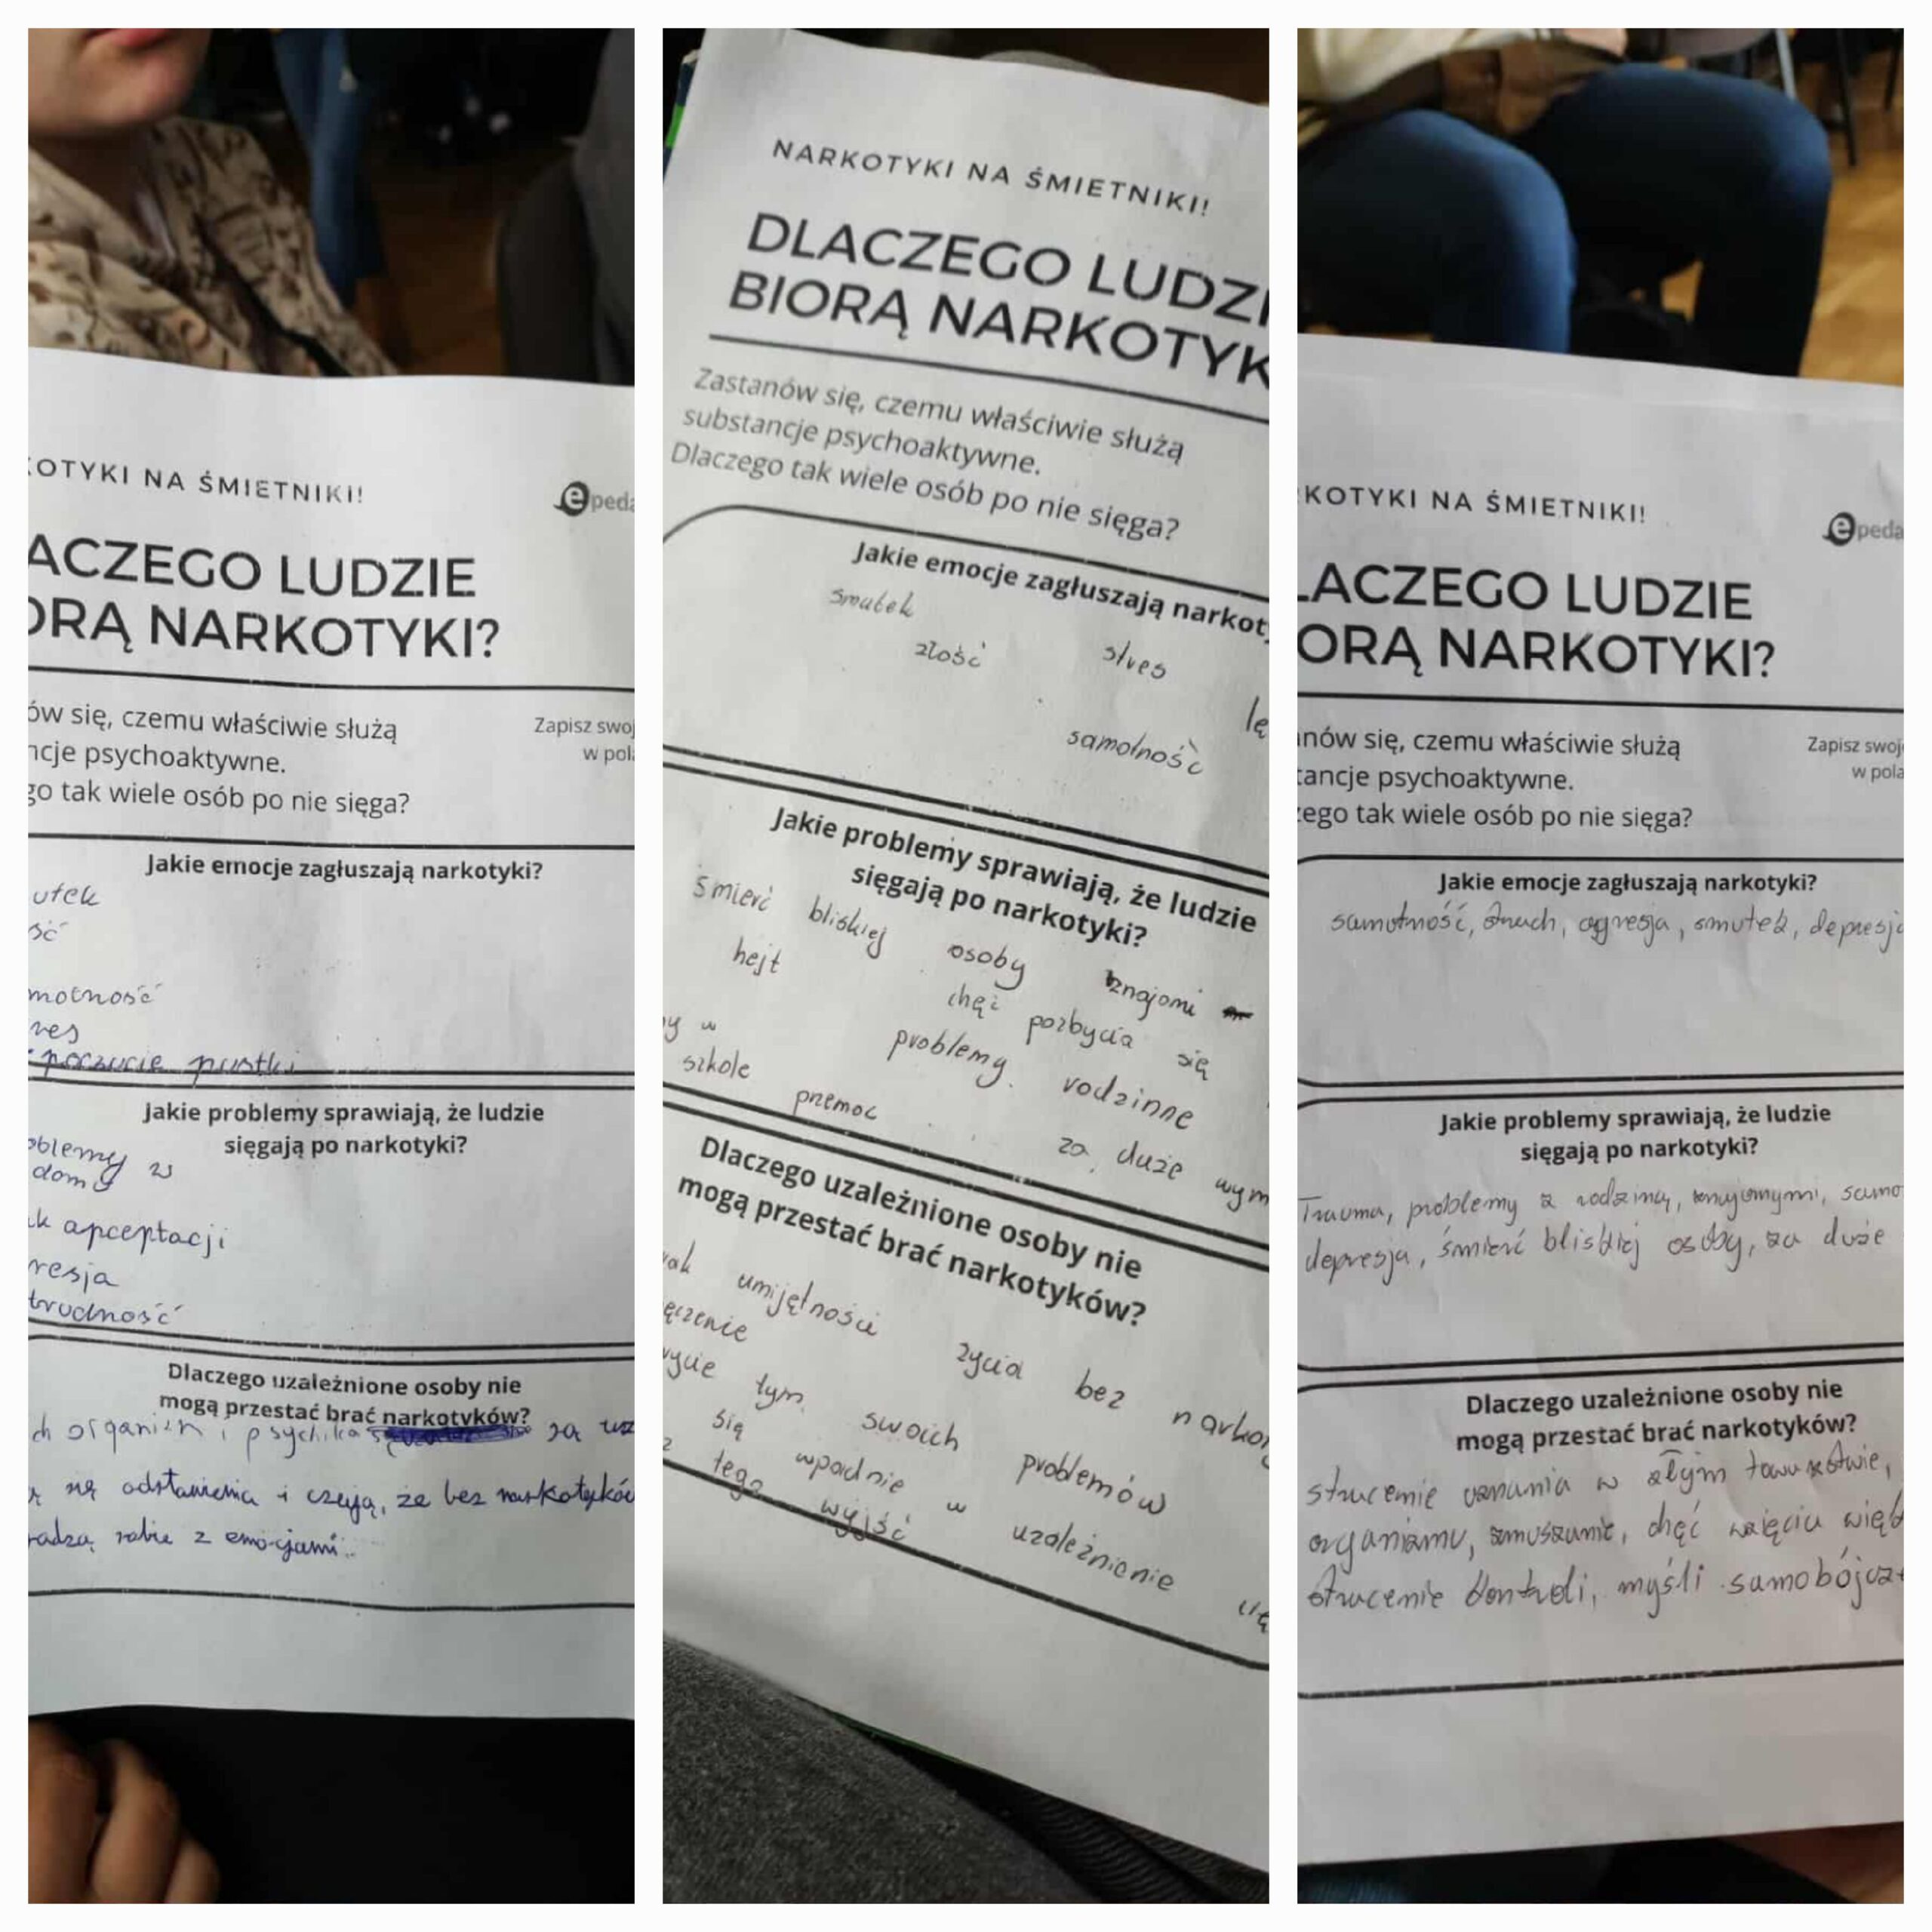 KOTYKI NA ŚMIETNIKI!
epeda
ACZEGO LUDZIE
ORĄ NARKOTYKI?
ów się, czemu właściwie służą
ncje psychoaktywne.
go tak wiele osób po nie sięga?
Zapisz swoj
w pola
Jakie emocje zagłuszają narkotyki?
utek
ść
motność
res
poczucie pustki
Jakie problemy sprawiają, że ludzie
sięgają po narkotyki?
oblemy w
domu
ak apceptacji
resja
trudność
Dlaczego uzależnione osoby nie
mogą przestać brać narkotyków?
ch organizm i psychika są
się odstawienia i czują, że bez narkotyków
radzą sobie z emocjami.
NARKOTYKI NA ŚMIETNIKI!
DLACZEGO LUDZI
BIORĄ NARKOTYK
Zastanów się, czemu właściwie służą
substancje psychoaktywne.
Dlaczego tak wiele osób po nie sięga?
Jakie emocje zagłuszają narkoty
smutek
złość stres
lę
samotność
Jakie problemy sprawiają, że ludzie
sięgają po narkotyki?
śmierć bliskiej osoby znajomi
hejt chęć pozbycia się
y w problemy rodzinne
szkole
przemoc za duże wym
Dlaczego uzależnione osoby nie
mogą przestać brać narkotyków?
rak umijętności życia bez narko
ęczenie
życie tym swoich problemów
się wpadnie w uzależnienie
z tego wyjść
KOTYKI NA ŚMIETNIKI!
epeda
LACZEGO LUDZIE
ORĄ NARKOTYKI?
nów się, czemu właściwie służą
tancje psychoaktywne.
zego tak wiele osób po nie sięga?
Zapisz swoj
w pola
Jakie emocje zagłuszają narkotyki?
samotność, strach, agresja, smutek, depresja
Jakie problemy sprawiają, że ludzie
sięgają po narkotyki?
Trauma, problemy z rodziną, znajomymi, samo
depresja, śmierć bliskiej osoby, za duże
Dlaczego uzależnione osoby nie
mogą przestać brać narkotyków?
stracenie uznania w złym towarzystwie,
organizmu, zmuszanie, chęć wzięcia więk
stracenie kontroli, myśli samobójcze